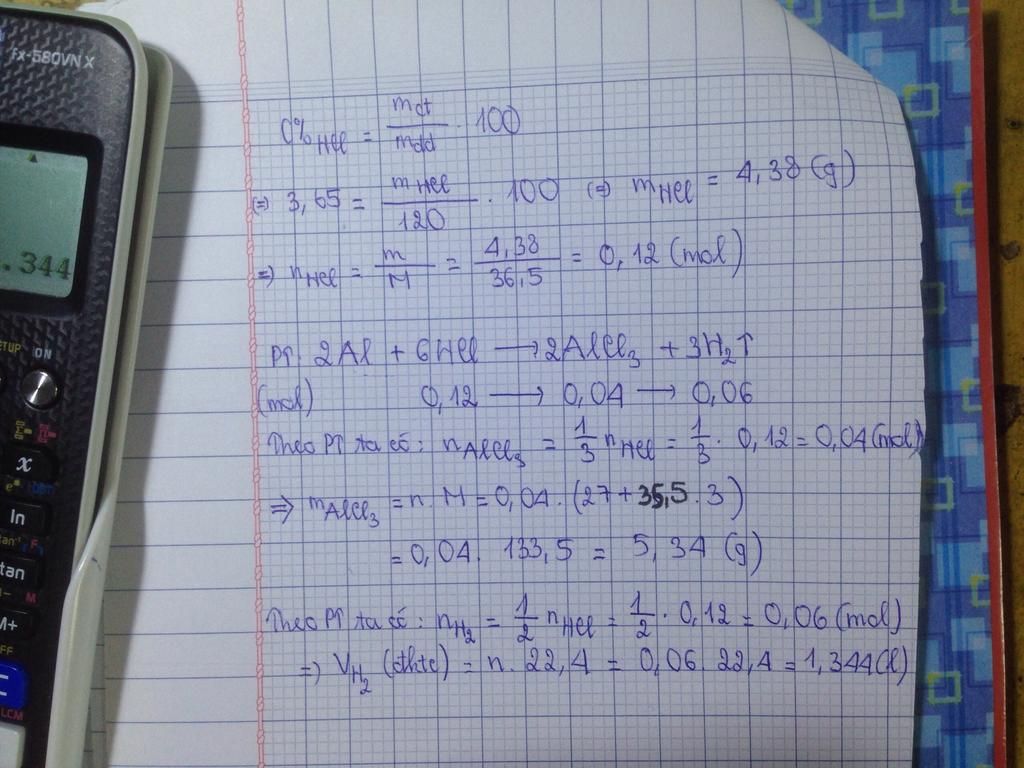 fx-580VN X
.344
ETUP ON
x
ln
tan
M+
C%HCl = mct/mdd . 100
(=) 3,65 = mHCl/120 . 100 (=) mHCl = 4,38 (g)
=) nHCl = m/M = 4,38/36,5 = 0,12 (mol)
PT: 2Al + 6HCl ⟶ 2AlCl₃ + 3H₂↑
(mol) 0,12 ⟶ 0,04 ⟶ 0,06
Theo PT ta có: nAlCl₃ = 1/3 nHCl = 1/3 . 0,12 = 0,04 (mol)
=> mAlCl₃ = n . M = 0,04 . (27 + 35,5 . 3)
= 0,04 . 133,5 = 5,34 (g)
Theo PT ta có: nH₂ = 1/2 nHCl = 1/2 . 0,12 = 0,06 (mol)
=) VH₂ (đktc) = n . 22,4 = 0,06 . 22,4 = 1,344 (l)